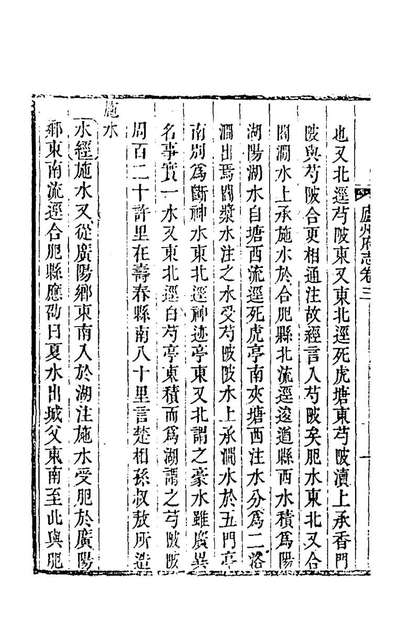 廬州府志卷三
也又北逕芍陂東又東北逕死虎塘東芍陂瀆上承香門
陂與芍陂合更相通注故經言入芍陂矣肥水東北又合
閻澗水上承施水於合肥縣北流逕浚遒縣西水積爲陽
湖陽湖水自塘西流逕死虎亭南夾塘西注水分爲二洛
澗出焉閻漿水注之水受芍陂陂水上承澗水於五門亭
南別爲斷神水又東北逕神迹亭東又北謂之豪水雖廣異
名事實一水又東北逕白芍亭東積而爲湖謂之芍陂陂
周百二十許里在壽春縣南八十里言楚相孫叔敖所造
施水
水經施水又從廣陽鄉東南入於湖注施水受肥於廣陽
鄉東南流逕合肥縣應劭曰夏水出城父東南至此與肥